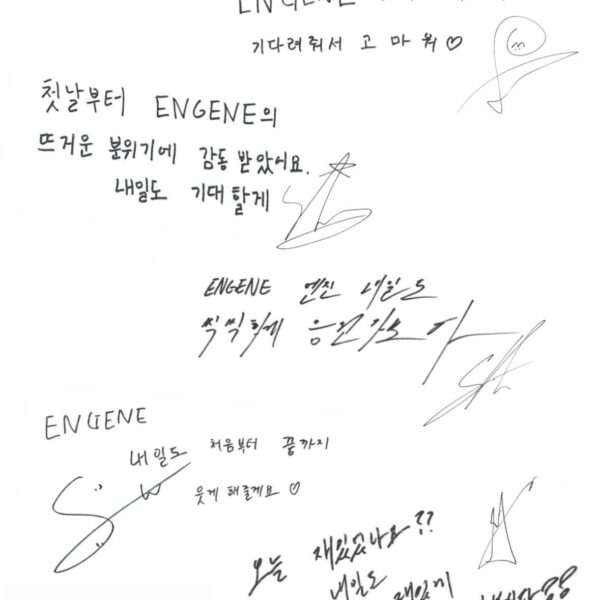 ENGENE
기다려줘서 고마워♡
첫날부터 ENGENE의
뜨거운 분위기에 감동 받았어요.
내일도 기대할게
ENGENE 엔진 내일도
씩씩하게 응원가보자
ENGENE
내일도 처음부터 끝까지
웃게 해줄게요 ♡
오늘 재밌었나요??
내일도
재밌게